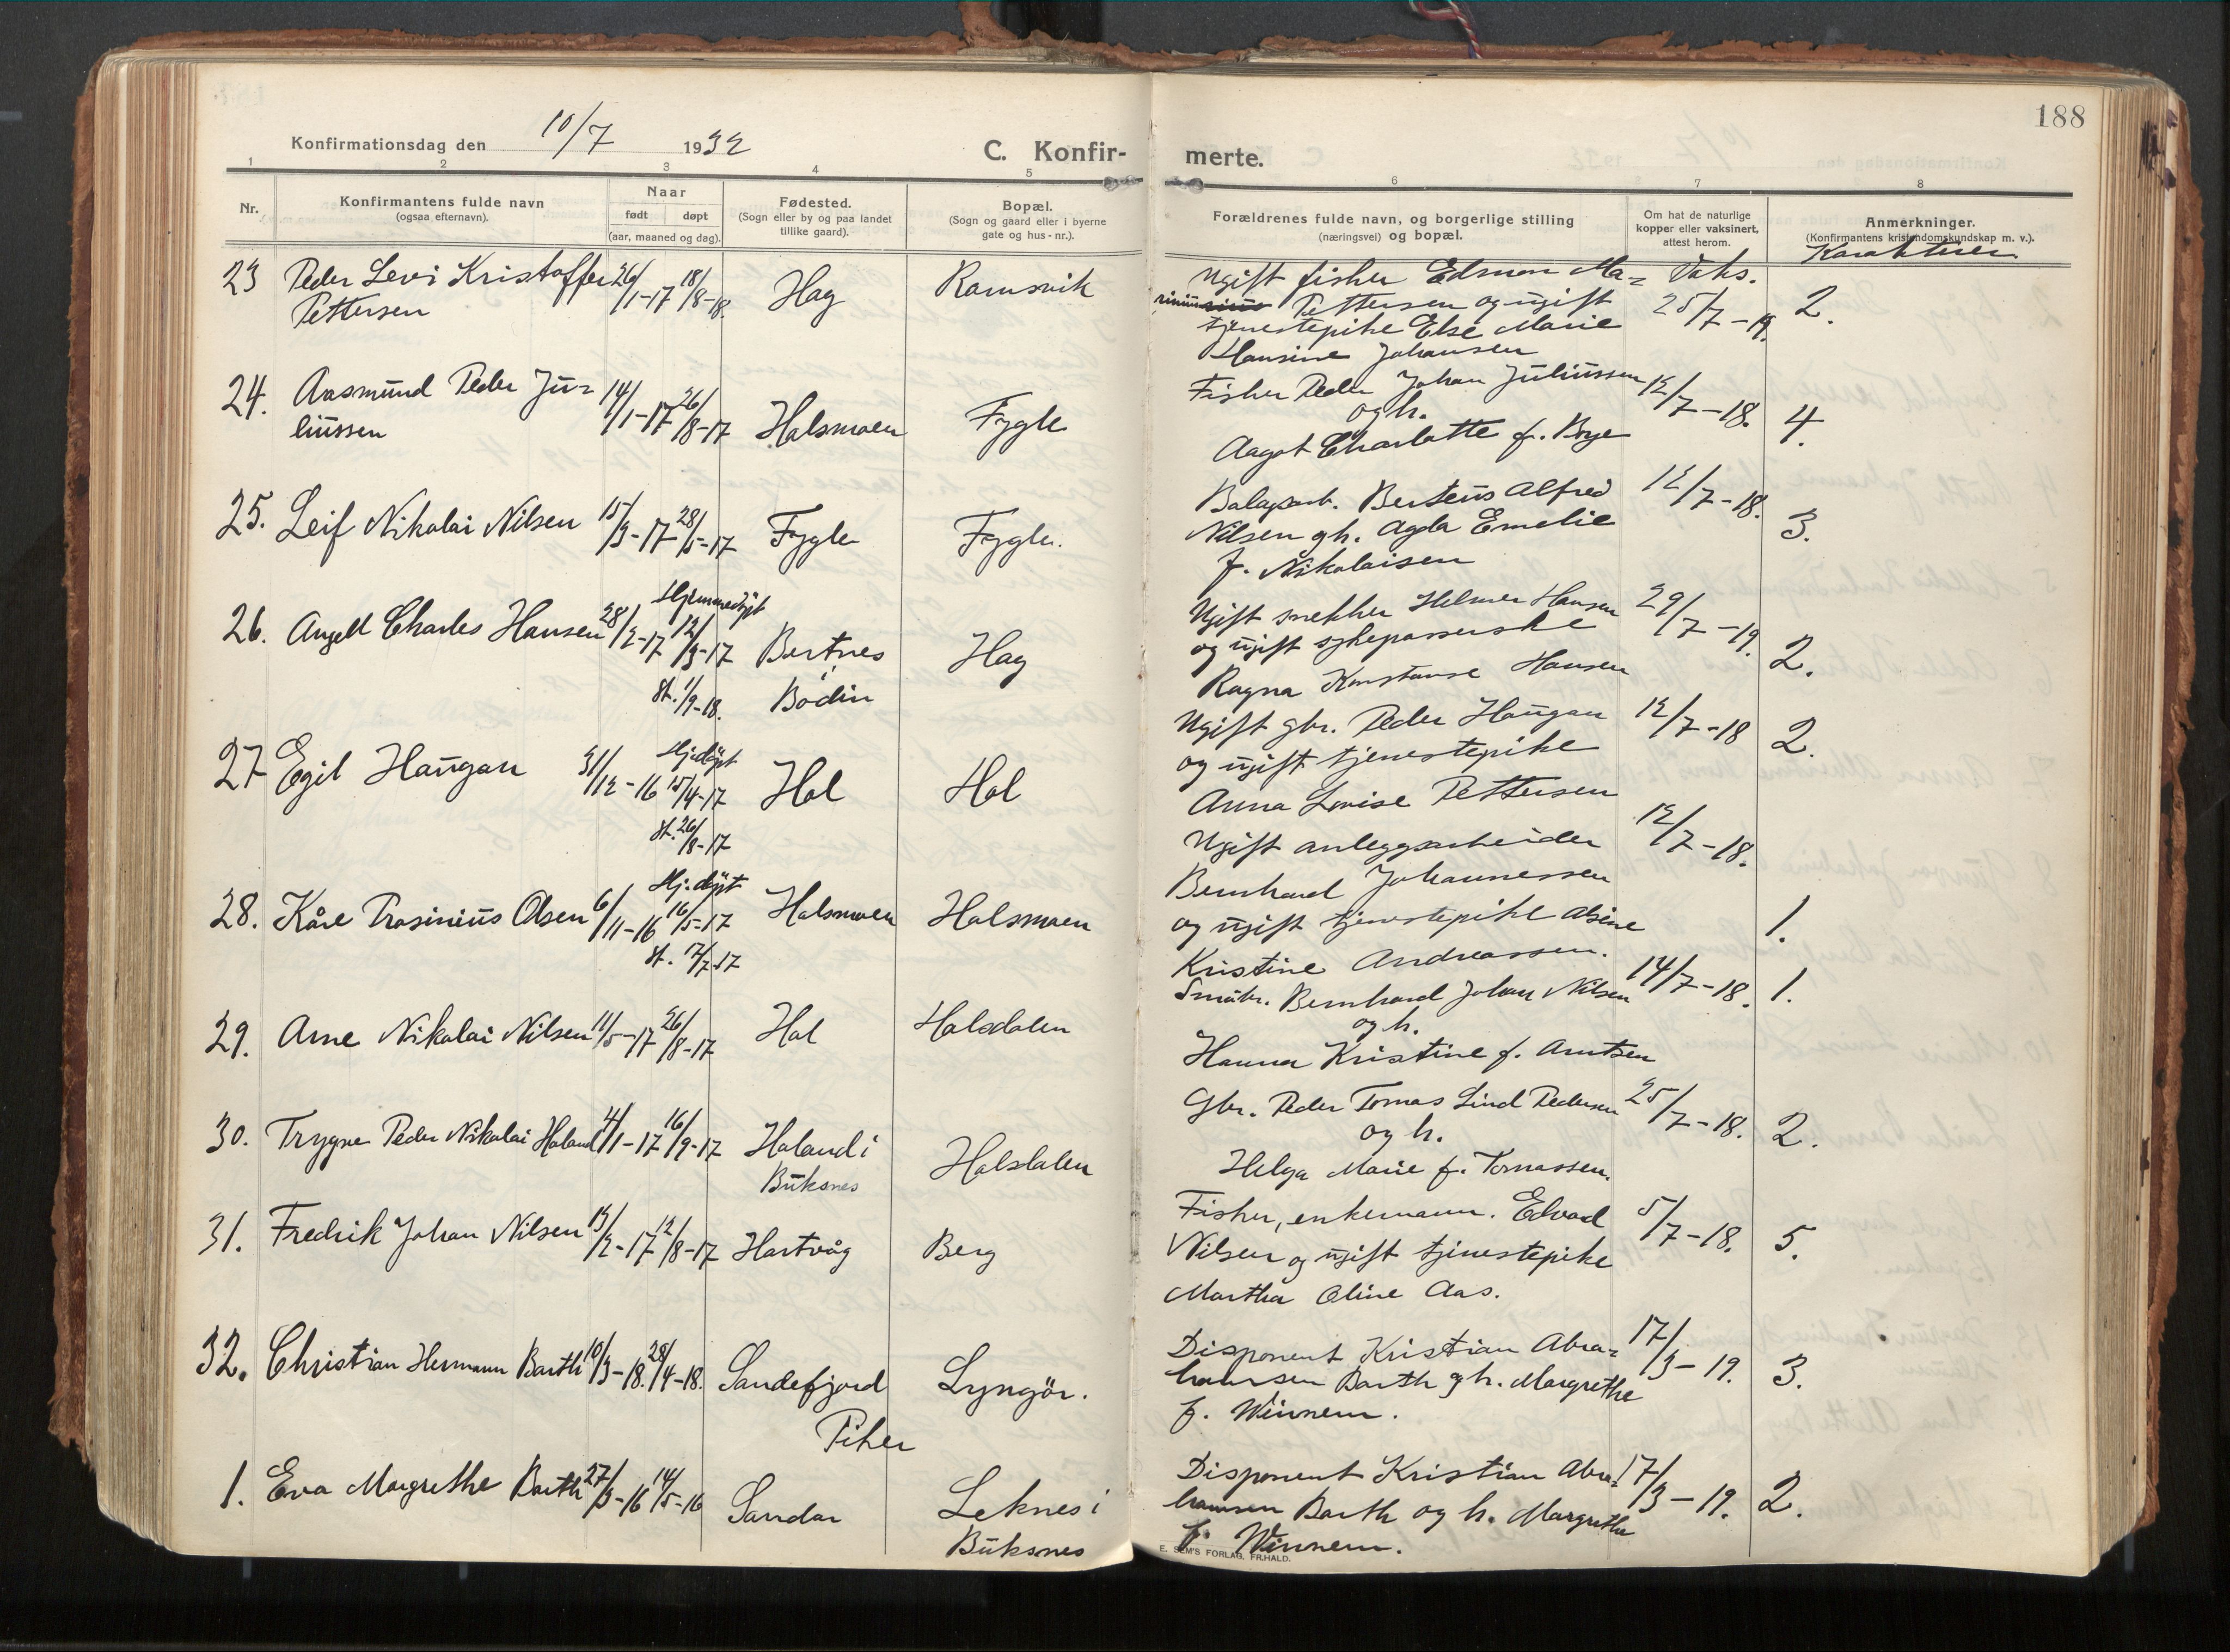 188
Konfirmationsdag den 10/7 1932
C. Konfir-
merte.
1 2 3 4 5 6 7 8
Nr.
Konfirmantens fulde navn
(ogsaa efternavn).
Naar
født døpt
(aar, maaned og dag).
Fødested.
(Sogn eller by og paa landet
tillike gaard).
Bopæl.
(Sogn og gaard eller i byerne
gate og hus-nr.).
Forældrenes fulde navn, og borgerlige stilling
(næringsvei) og bopæl.
Om hat de naturlige
kopper eller vaksinert,
attest herom.
Anmerkninger.
(Konfirmantens kristendomskundskap m. v.).
Karakterer
23 Peder Levi Kristoffer 26/1-17 18/8-18. Hag Ramsvik
Pettersen
Ugift fisker Edmon Ma= Vaks.
rinius Pettersen og ugift 25/7-19. 2.
tjenestepike Else Marie
Hansine Johansen
24. Aasmund Peder Ju= 14/1-17 26/8-17 Halsmoen Fygle
liussen
Fisker Peder Johan Juliussen 12/7-18. 4.
og h.
Aagot Charlotte f. Boye
25. Leif Nikolai Nilsen 15/3-17 28/5-17 Fygle Fygle.
Berteus Alfred 12/7-18. 3.
Nilsen gh. Agda Emelie
f. Nikolaisen
26. Angell Charles Hansen 28/2-17 Hjemmedøpt 12/3-17 Bertnes Hag
st. 1/9-18. Bodin
Ugift snekker Helmer Hansen 29/7-19. 2.
og ugift sykepasserske
Ragna Konstanse Hansen
27 Egil Haugan 31/12-16 Hj.døpt 15/4-17 Hol Hol
st. 26/8-17
Ugift gbr. Peder Haugan 12/7-18 2.
og ugift tjenestepike
Anna Lovise Pettersen
28. Kåre Prosinius Olsen 6/11-16 Hj.døpt 16/5-17 Halsmoen Holsmoen
st. 17/7-17
Ugift anleggsarbeider 12/7-18.
Bernhard Johannessen
og ugift tjenestepike Alsine 1.
Kristine Andreassen.
29. Arne Nikolai Nilsen 11/5-17 26/8-17 Hol Holsdalen
Småbr. Bernhard Johan Nilsen 14/7-18. 1.
og h.
Hanna Kristine f. Arntsen
30. Trygve Peder Nikolai Holand 4/1-17 16/9-17 Holand i Holsdalen
Buksnes
Gbr. Peder Tomas Lind Pedersen 25/7-18. 2.
og h.
Helga Marie f. Tomassen.
31. Fredrik Johan Nilsen 13/2-17 12/8-17 Hartvåg Berg
Fisker, enkemann. Edvard 5/7-18. 5.
Nilsen og ugift tjenestepike
Martha Oline Aas.
32. Christian Hermann Barth 10/3-18. 28/4-18. Sandefjord Lyngör.
Disponent Kristian Abra= 17/3-19. 3.
hamsen Barth gh. Margrethe
f. Winnem.
Piker
1. Eva Margrethe Barth 27/3-16 14/5-16 Sandar Leknes i
Buksnes
Disponent Kristian Abra= 17/3-19. 2.
hamsen Barth og h. Margrethe
f. Winnem.
E. SEM'S FORLAG. FR.HALD.